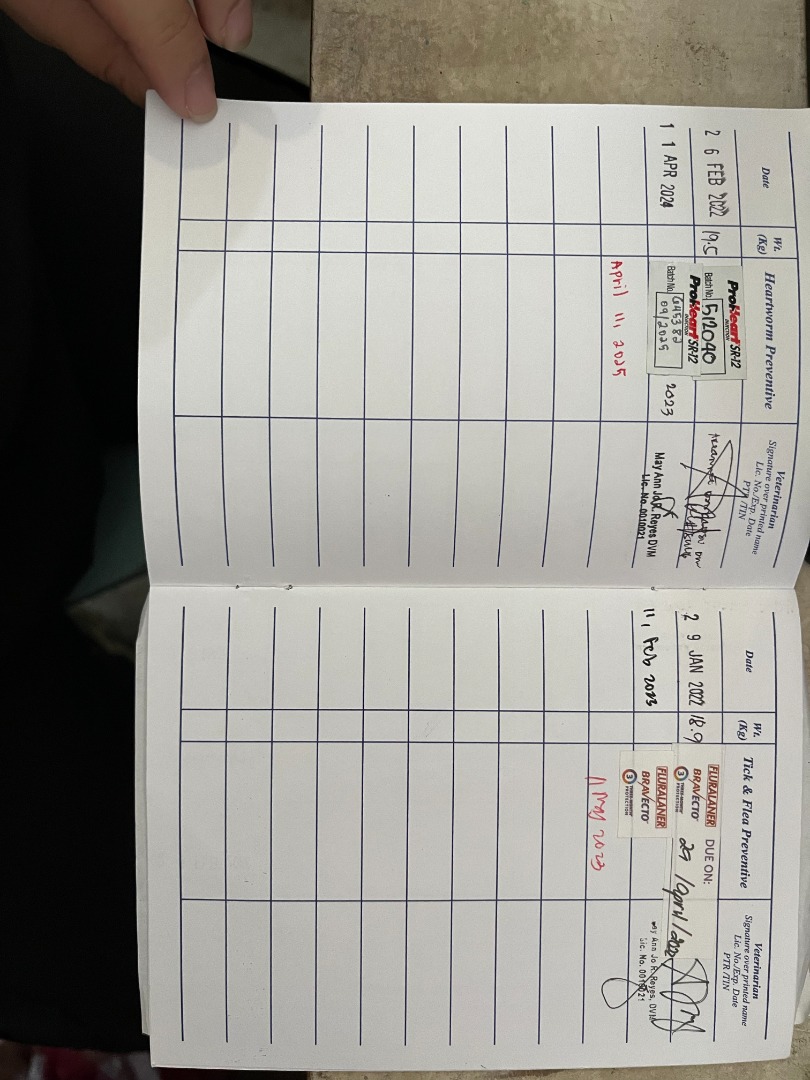 Date
Wt.
(Kg)
Heartworm Preventive
Veterinarian
Signature over printed name
Lic. No./Exp. Date
PTR /TIN
2 6 FEB 2022
19.5
ProHeart SR-12
INJECTION
Batch No. 512040
1 1 APR 2024
ProHeart SR-12
INJECTION
Batch No. G45382
09/2025
2023
May Ann Jo R. Reyes DVM
Lic. No. 0010021
April 11, 2025
Date
Wt.
(Kg)
Tick & Flea Preventive
Veterinarian
Signature over printed name
Lic. No./Exp. Date
PTR /TIN
2 9 JAN 2022
18.9
FLURALANER DUE ON:
BRAVECTO
3 THREE-MONTH PROTECTION
29 April / 2022
11, Feb 2023
FLURALANER
BRAVECTO
3 THREE-MONTH PROTECTION
May Ann Jo R. Reyes, DVM
Lic. No. 0010021
11 May 2023